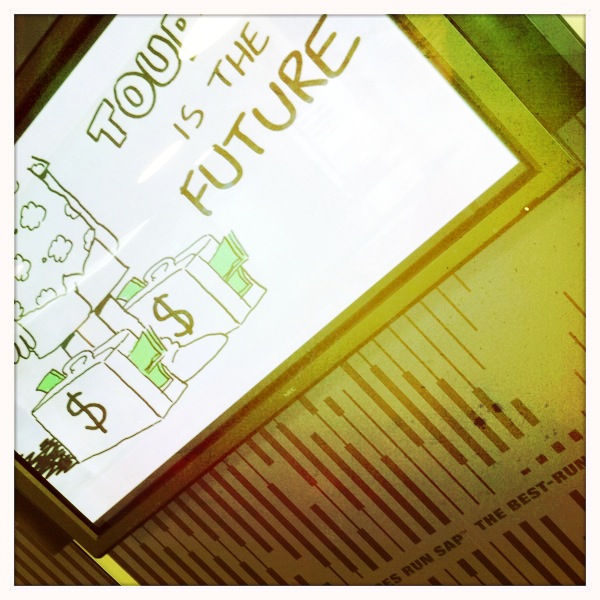 IS THE
FUTURE
$
$
RUN SAP® THE BEST-RUN